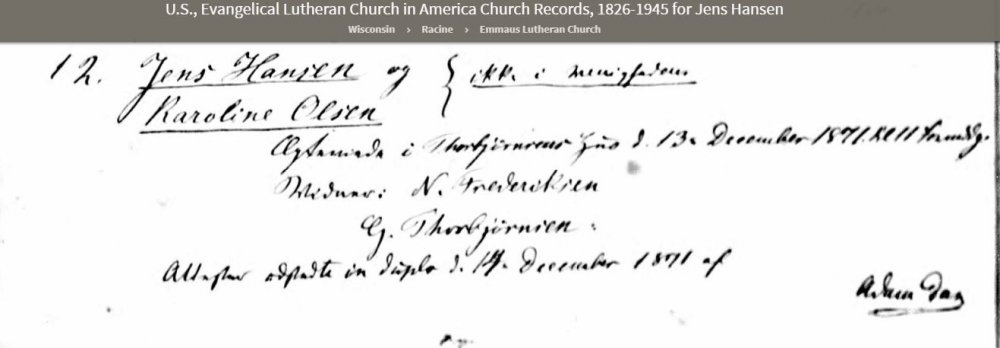 U.S., Evangelical Lutheran Church in America Church Records, 1826-1945 for Jens Hansen
Wisconsin › Racine › Emmaus Lutheran Church
12. Jens Hansen og { ikke i menigheden
Karoline Olsen
Ægteviede i Thorbjörnsens Huus d. 13. December 1871. Kl 11 Formidg.
Vidner: N. Frederiksen
G. Thorbjörnsen.
Attester udstedte in duplo d. 14. December 1871 af
Adam Dan